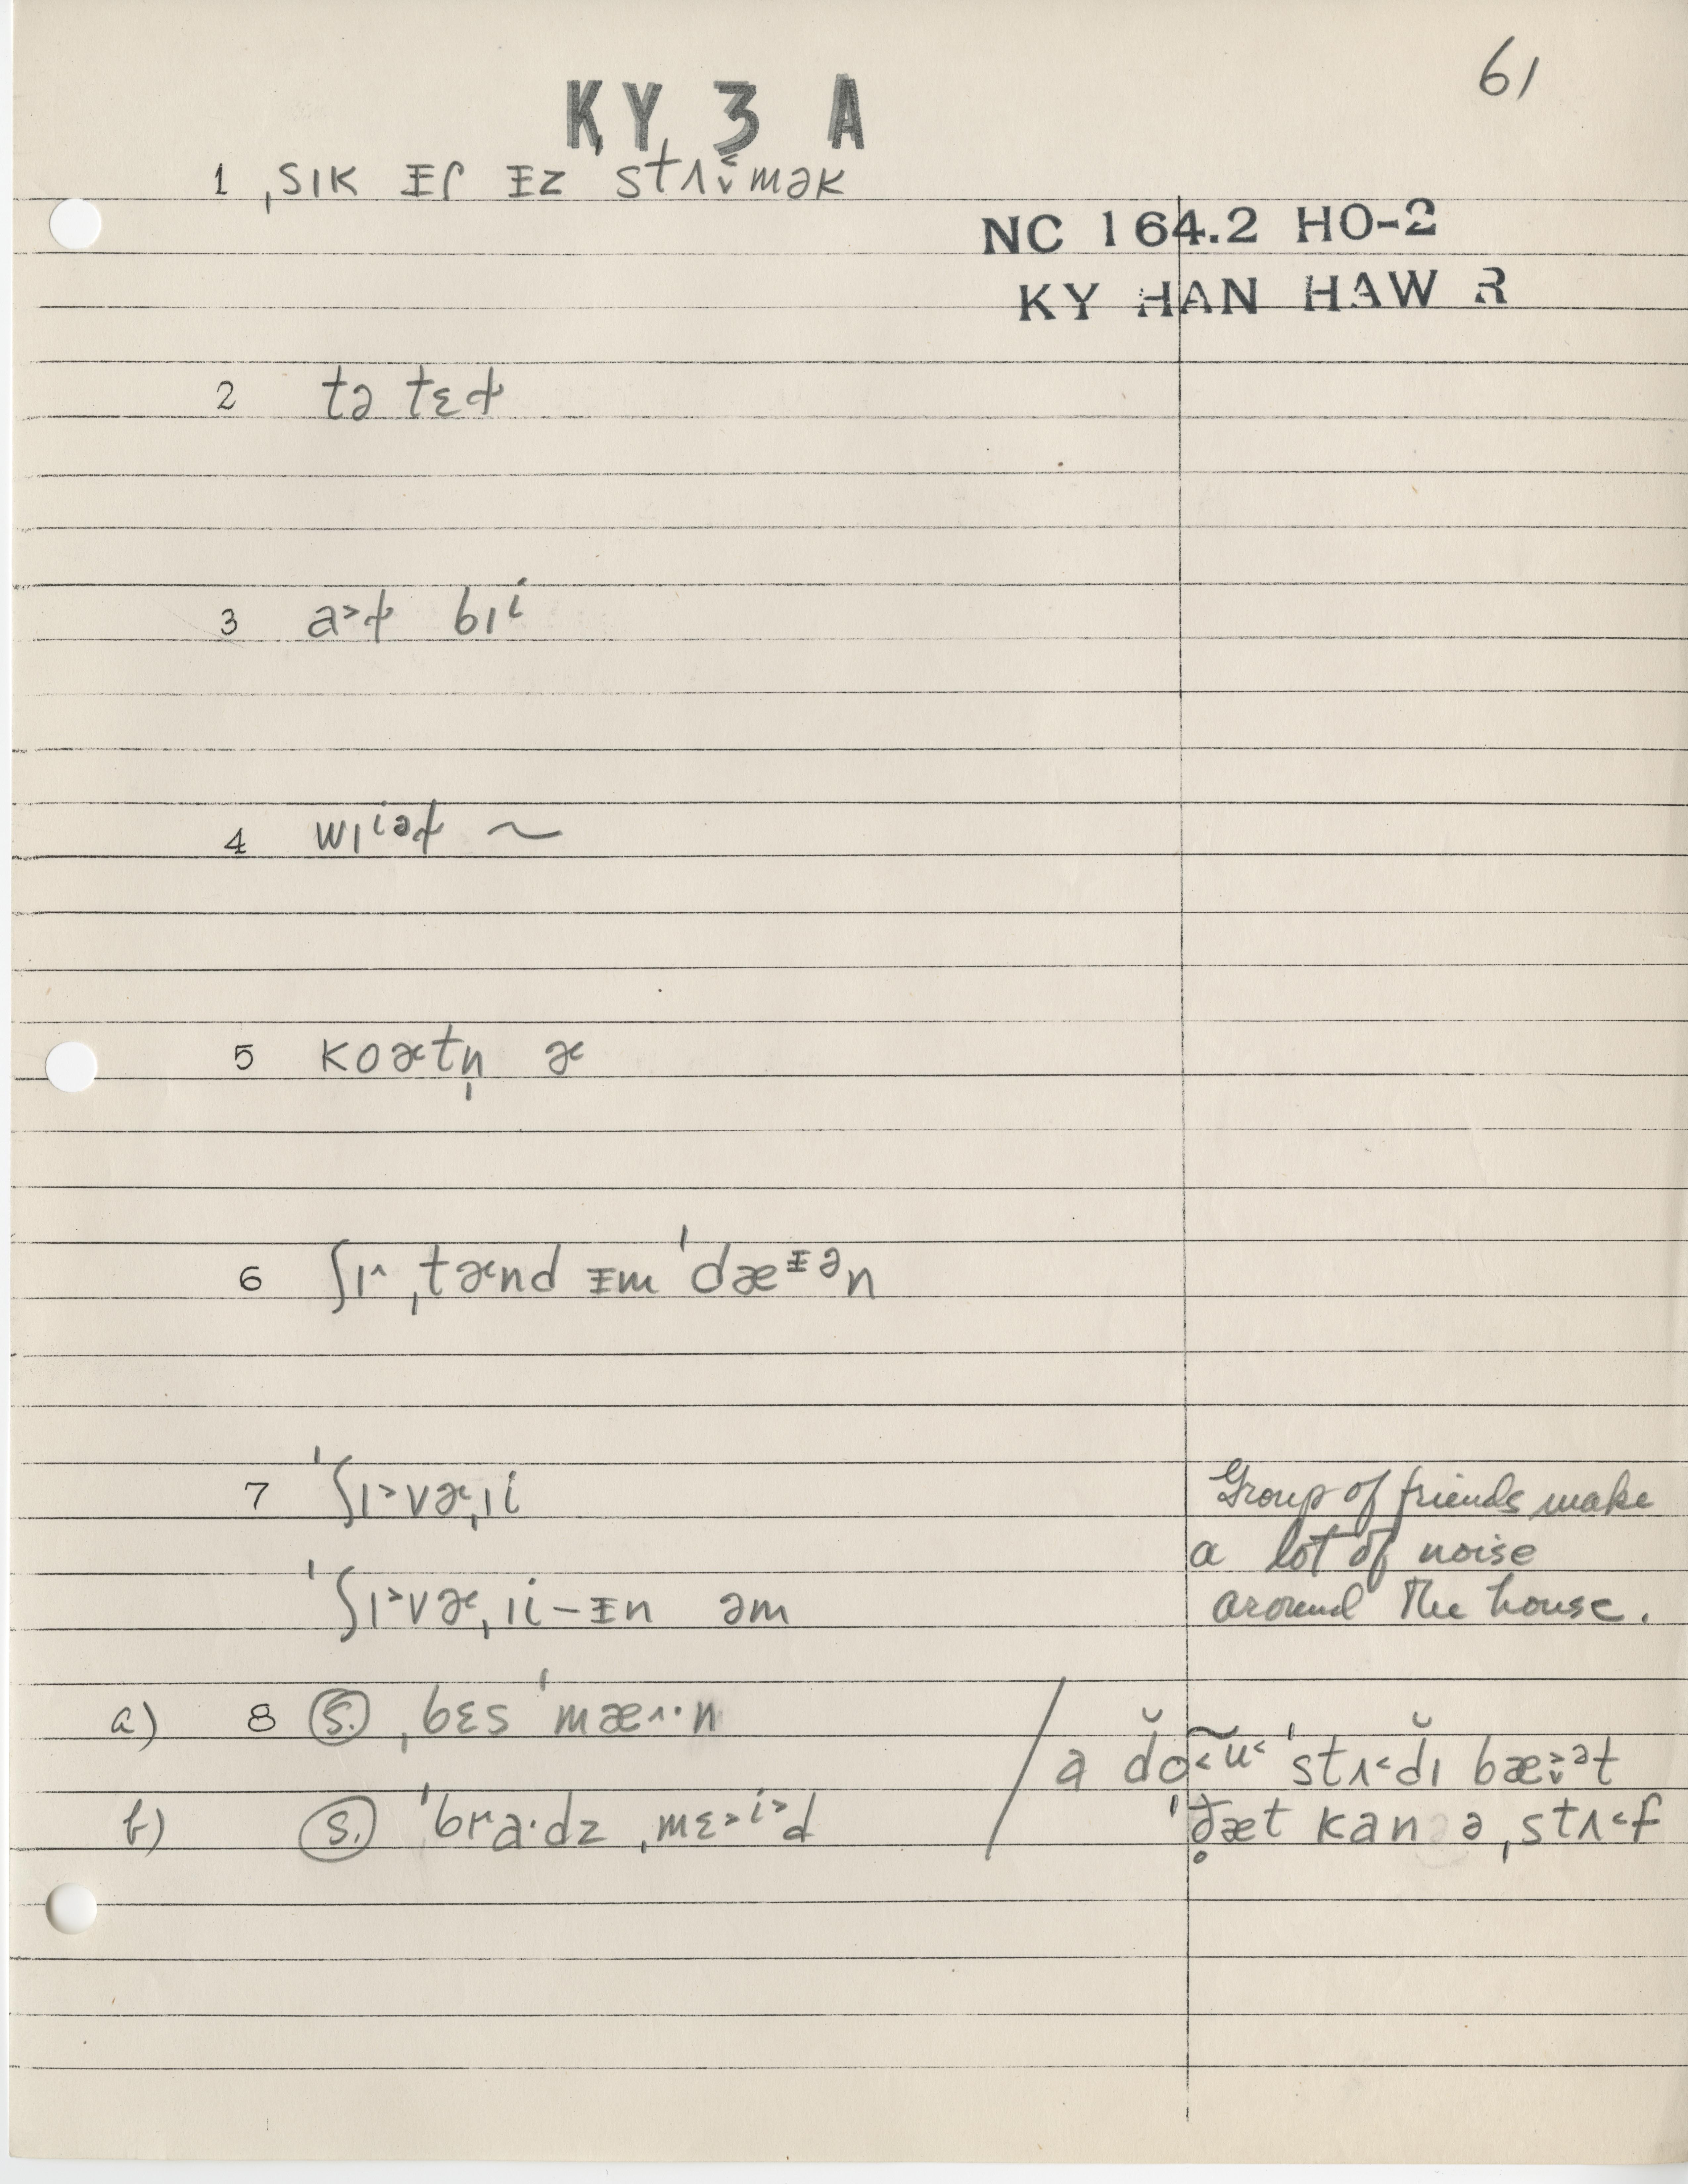 61
KY 3 A
1 ˌsɪk ᵻɾ ᵻz stʌ̬˂mək
NC 164.2 HO-2
KY HAN HAW R
2 tə tɛɫ
3 a˃ɫ bɪⁱ
4 wɪⁱᵊɫ ~
5 koɚtn̩ ɚ
6 ʃɪ^ ˌtɚnd ᵻm ˈdæᵻᵊn
7 ˈʃɪ˃vɚˌɪi
Group of friends make
ˈʃɪ˃vɚˌɪi-ᵻn əm
a lot of noise
around the house.
a) 8 (S.) ˌbɛs ˈmæɪ·n
/ a d̆o˂ᵘ̃˂ ˈstʌ˂d̆ɪ bæ˃̬ᵊt
b) (S.) ˈbra·dz ˌmɛ˃ⁱ˃d
ˈð̥æt kan ə ˌstʌ˂f